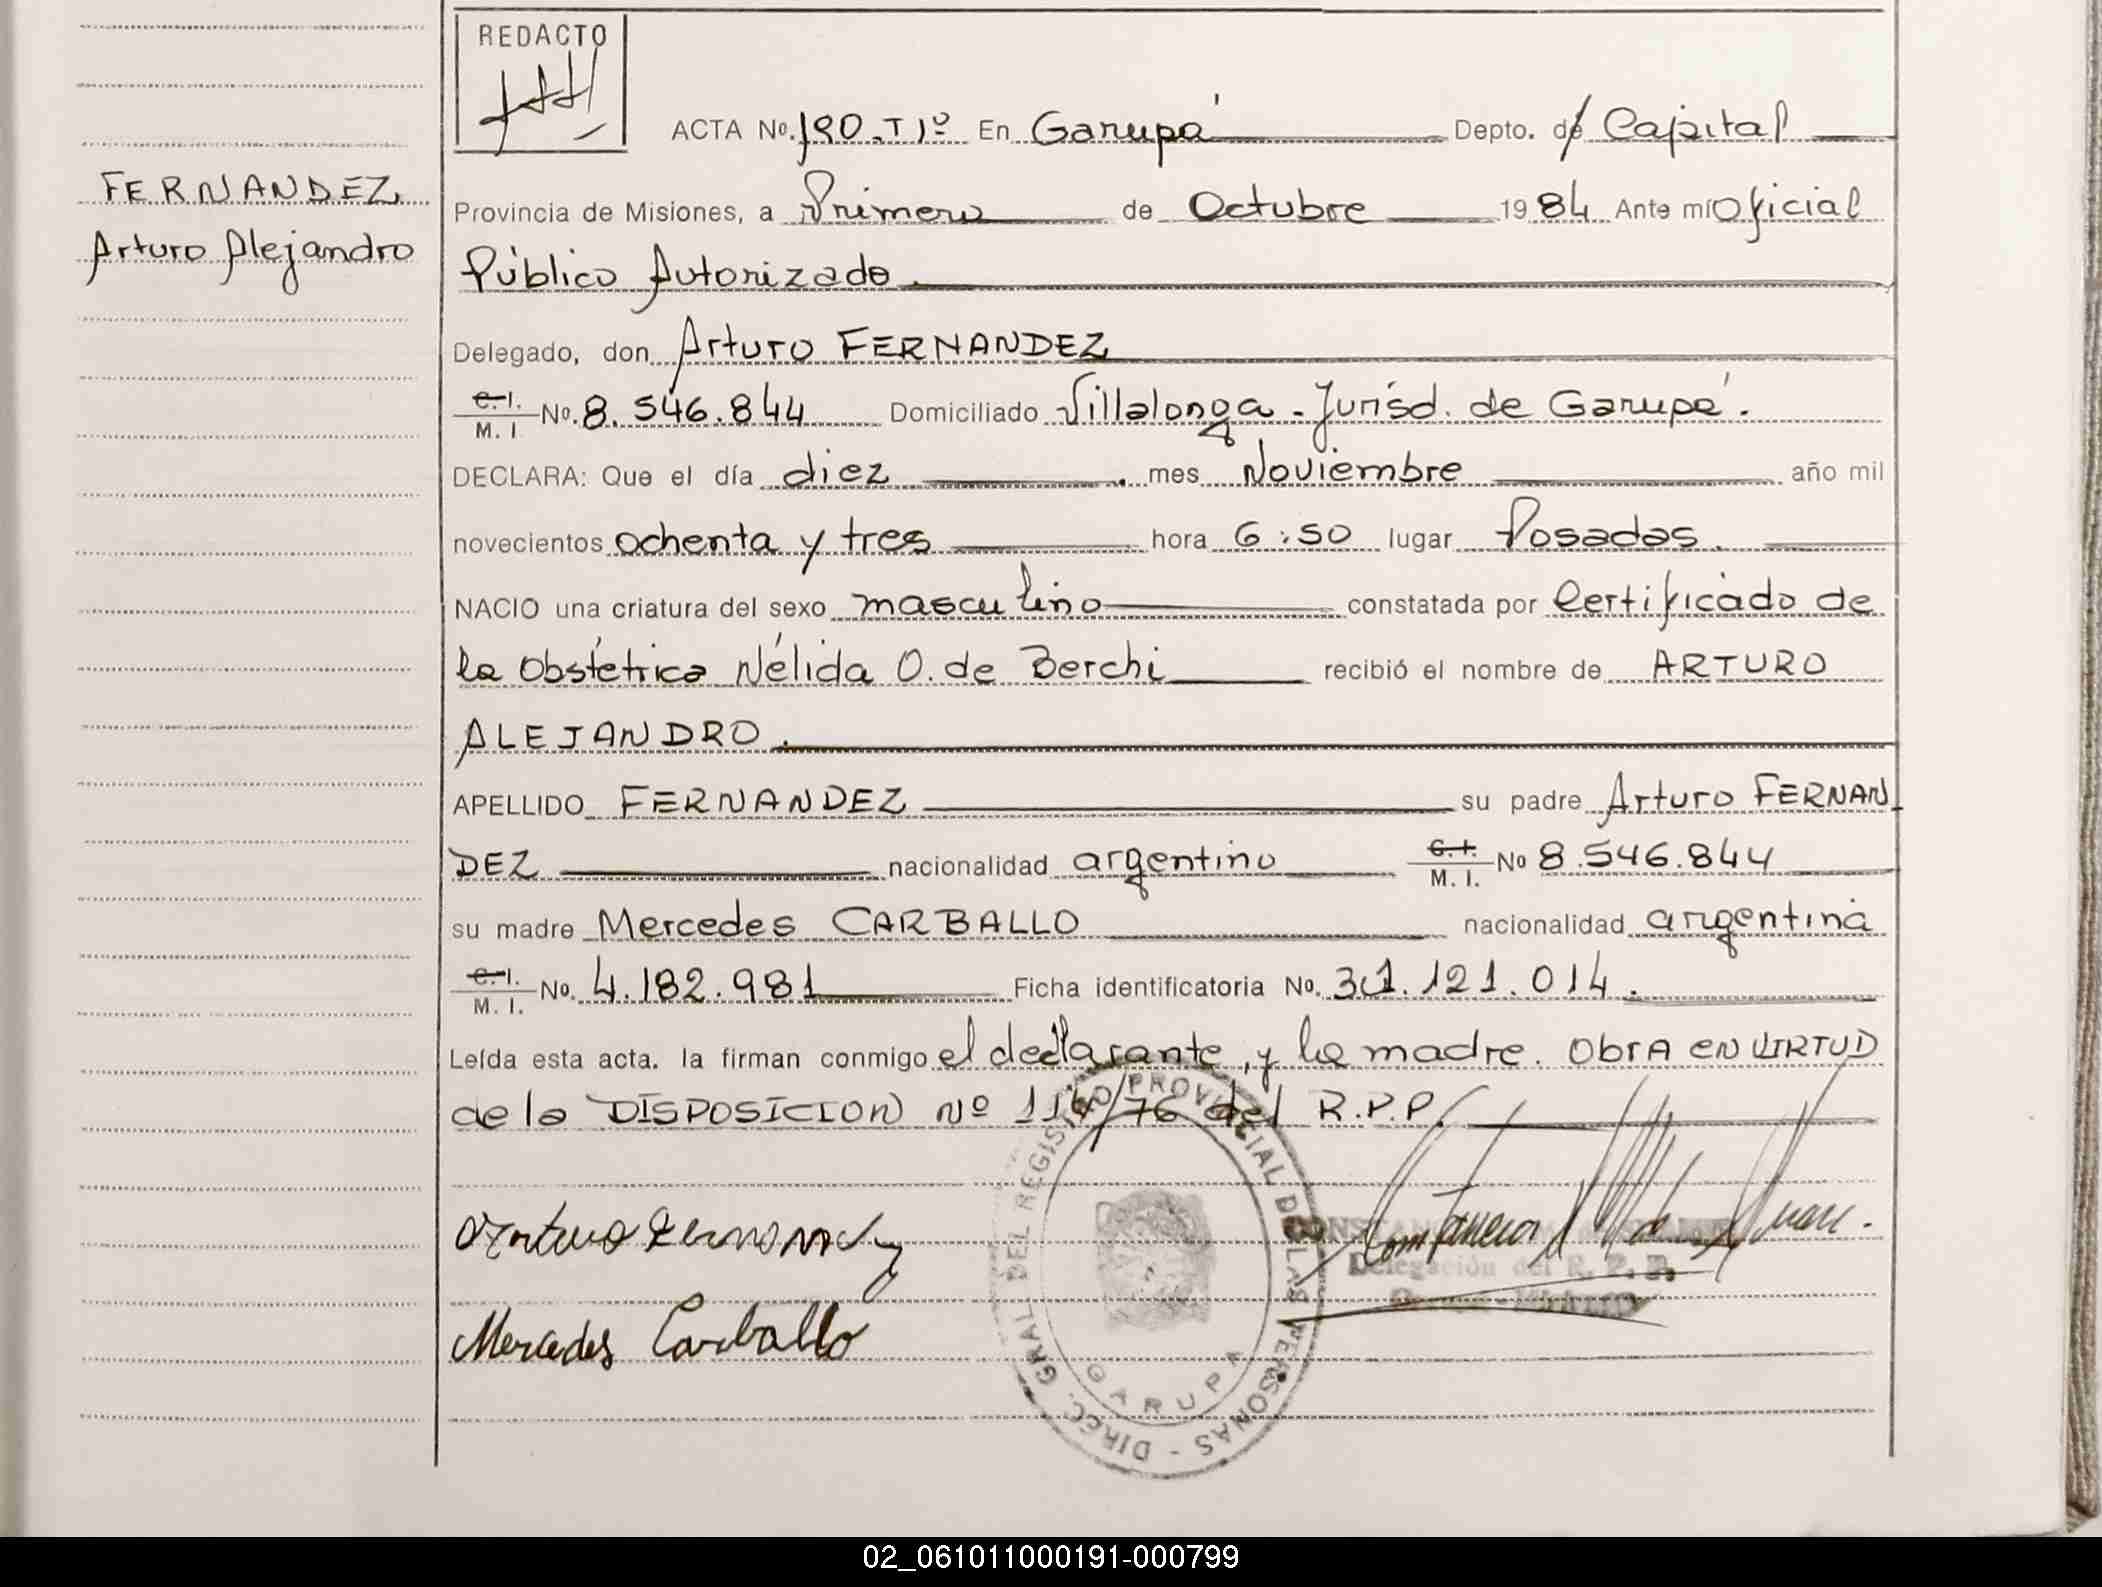 REDACTO
ACTA No. 190 - T 1º En Garupá Depto. de Capital
FERNANDEZ,
Arturo Alejandro
Provincia de Misiones, a Primero de Octubre 1984 Ante mí Oficial
Público Autorizado.
Delegado, don Arturo FERNANDEZ
C. I. M. I No. 8.546.844 Domiciliado Villalonga - Jurisd. de Garupá.
DECLARA: Que el día diez mes Noviembre año mil
novecientos ochenta y tres hora 6:50 lugar Posadas.
NACIO una criatura del sexo masculino constatada por Certificado de
la Obstétrica Nélida O. de Berchi recibió el nombre de ARTURO
ALEJANDRO.
APELLIDO FERNANDEZ su padre Arturo FERNAN
DEZ nacionalidad argentino C. I. M. I. No 8.546.844
su madre Mercedes CARBALLO nacionalidad argentina
C. I. M. I. No. 4.182.981 Ficha identificatoria No. 31.121.014.
Leída esta acta. la firman conmigo el declarante, y la madre. Obra EN VIRTUD
de la DISPOSICION Nº /76 del R.P.P.
Arturo Fernandez
Mercedes Carballo
DIREC. GRAL DEL REGISTRO PROVINCIAL DE LAS PERSONAS -
GARUPA
Delegación del R. P. P.
02_061011000191-000799